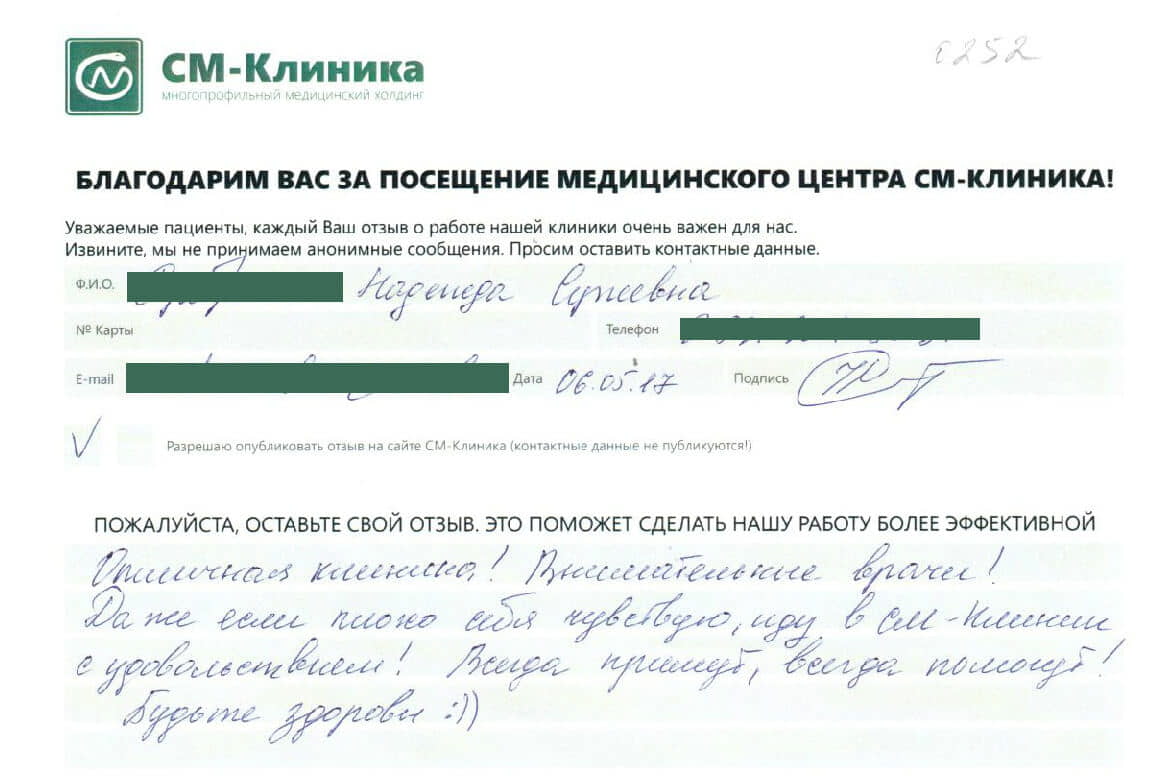 СМ-Клиника
многопрофильный медицинский холдинг
БЛАГОДАРИМ ВАС ЗА ПОСЕЩЕНИЕ МЕДИЦИНСКОГО ЦЕНТРА СМ-КЛИНИКА!
Уважаемые пациенты, каждый Ваш отзыв о работе нашей клиники очень важен для нас.
Извините, мы не принимаем анонимные сообщения. Просим оставить контактные данные.
Ф.И.О. Надежда
№ Карты Телефон
E-mail Дата 06.05.17 Подпись
Разрешаю опубликовать отзыв на сайте СМ-Клиника (контактные данные не публикуются!)
ПОЖАЛУЙСТА, ОСТАВЬТЕ СВОЙ ОТЗЫВ. ЭТО ПОМОЖЕТ СДЕЛАТЬ НАШУ РАБОТУ БОЛЕЕ ЭФФЕКТИВНОЙ
Отличная клиника! Внимательные врачи!
Даже если плохо себя чувствую, иду в СМ-Клинику
с удовольствием! Всегда примут, всегда помогут!
Будьте здоровы :))